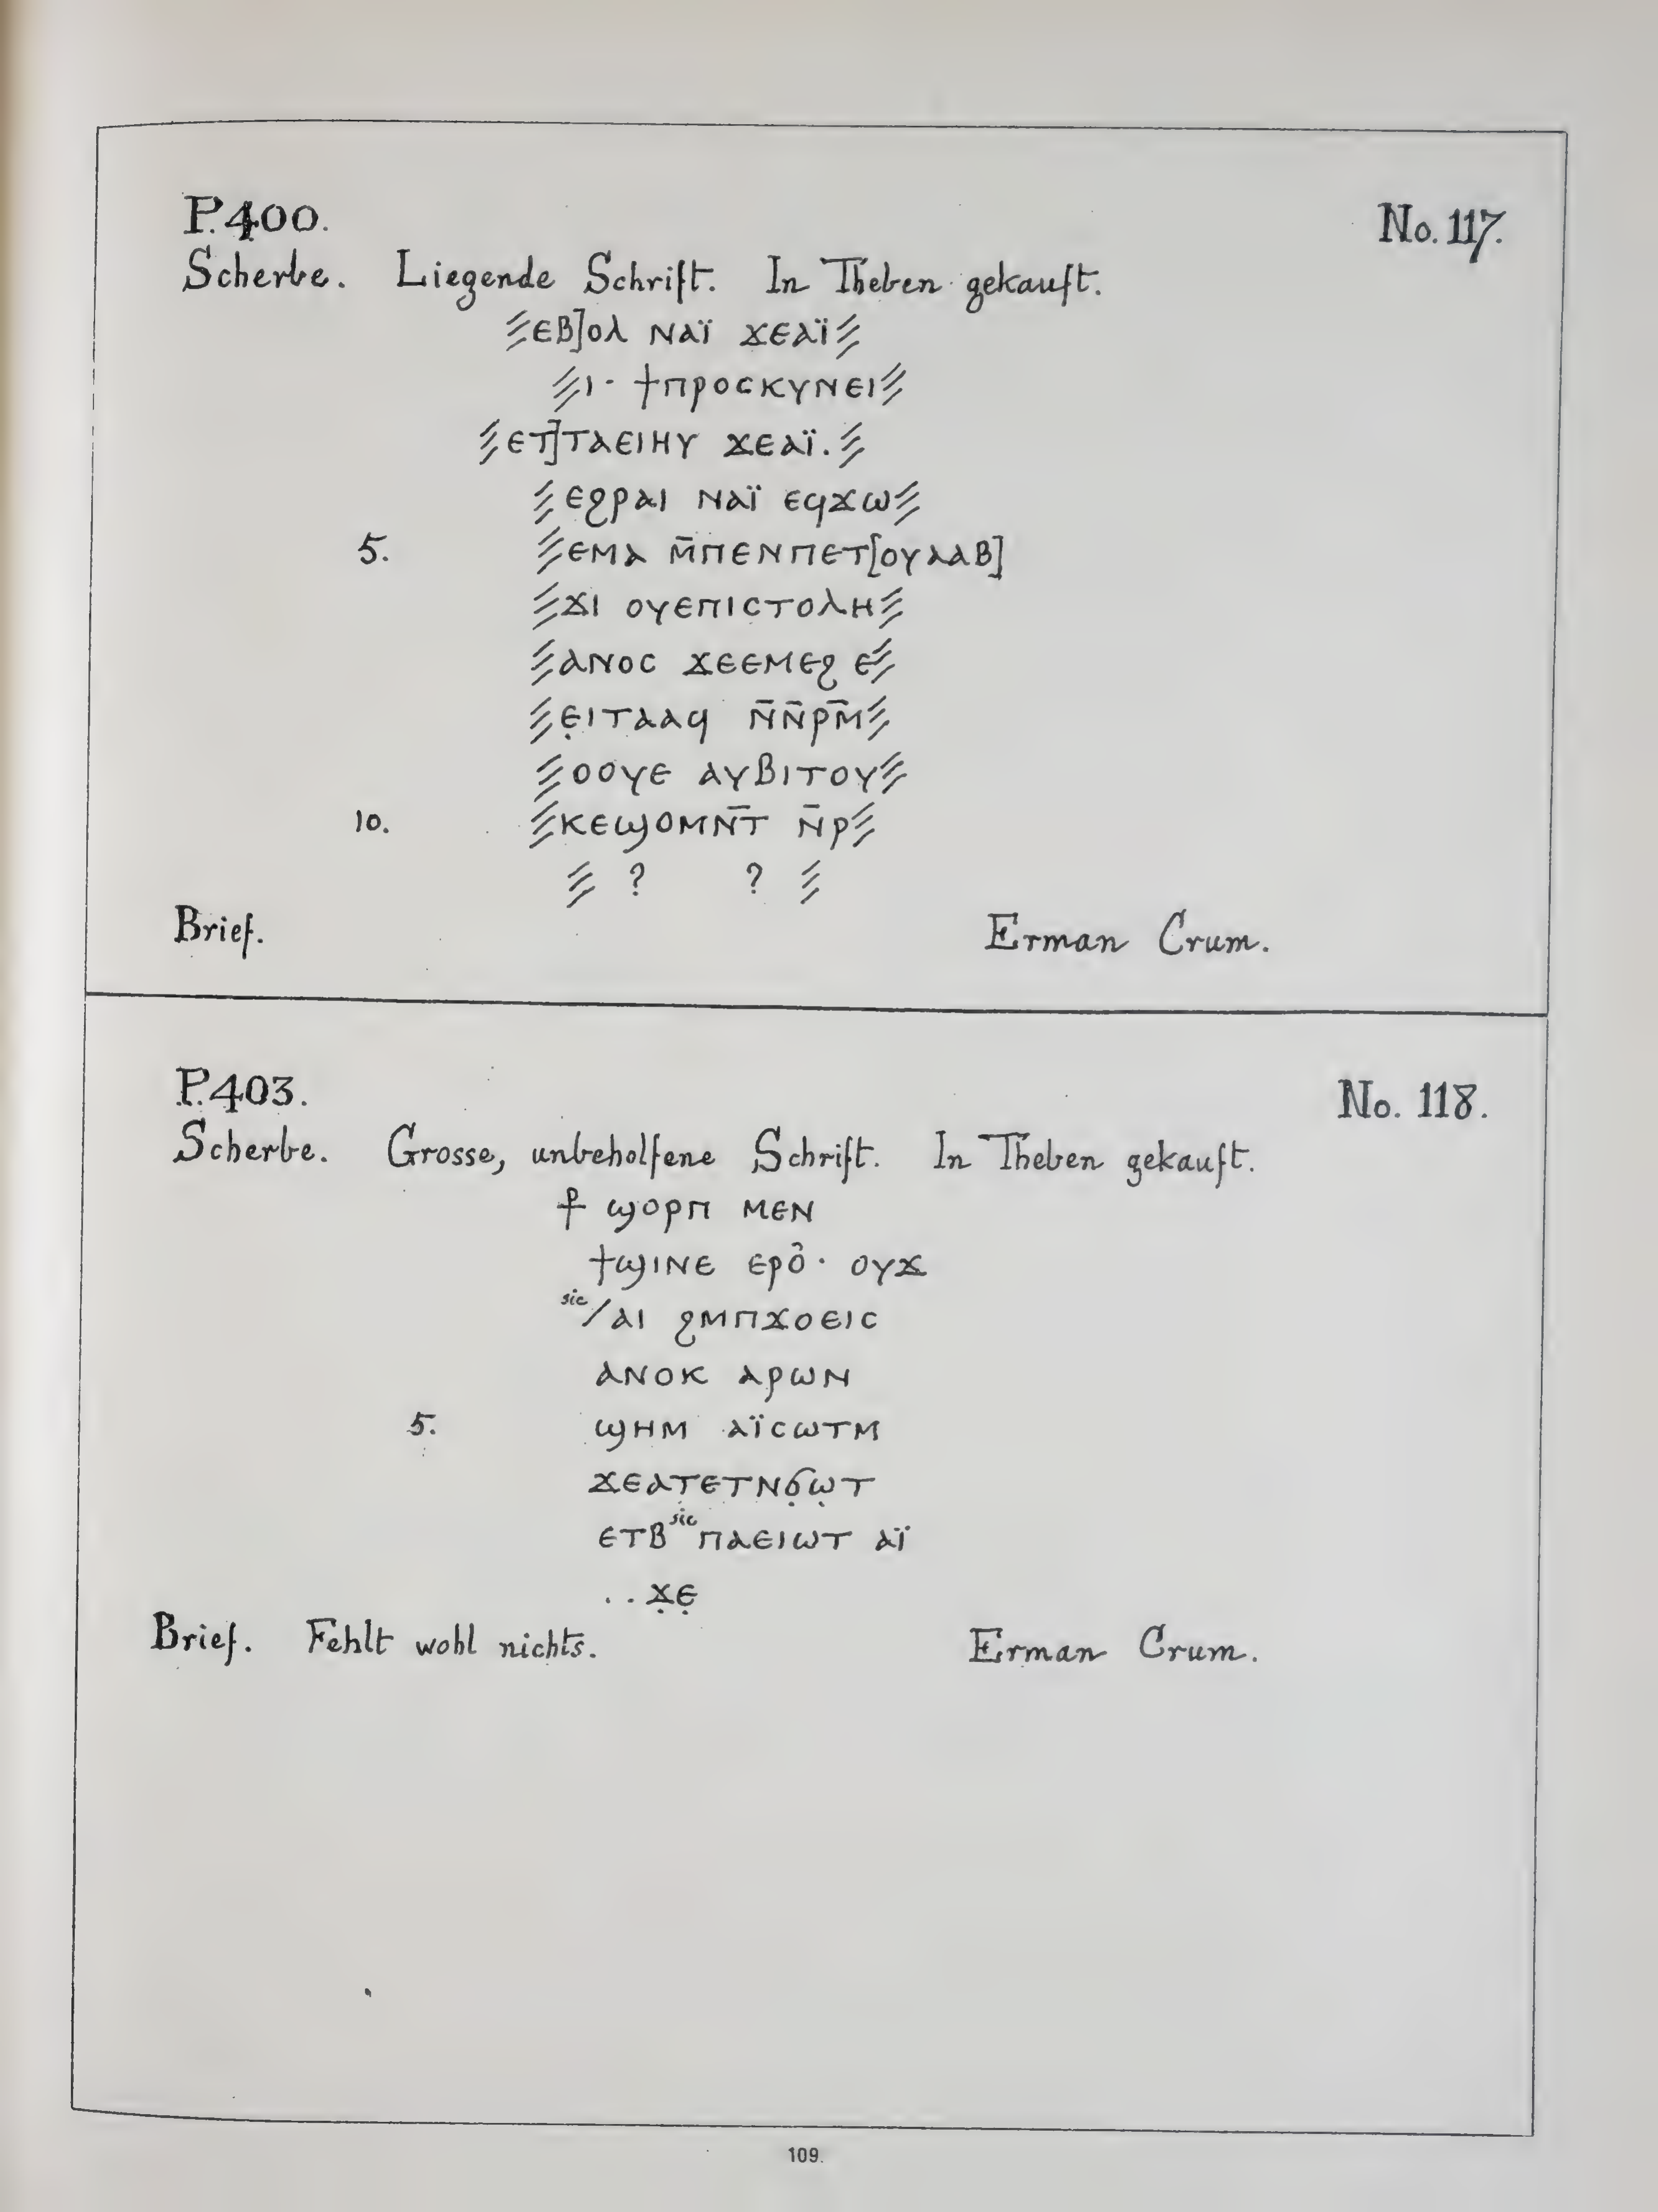 P.400. No. 117.
Scherbe. Liegende Schrift. In Theben gekauft.
⫽ⲉⲃ]ⲟⲗ ⲛⲁⲓ̈ ϫⲉⲁⲓ̈⫽
⫽ⲓ· ϯⲡⲣⲟⲥⲕⲩⲛⲉⲓ⫽
⫽ⲉⲧ]ⲧⲁⲉⲓⲏⲩ ϫⲉⲁⲓ̈.⫽
⫽ⲉϩⲣⲁⲓ ⲛⲁⲓ̈ ⲉϥϫⲱ⫽
5. ⫽ⲉⲙⲁ ⲙ̄ⲡⲉⲛⲡⲉⲧ[ⲟⲩⲁⲁⲃ]
⫽ϫⲓ ⲟⲩⲉⲡⲓⲥⲧⲟⲗⲏ⫽
⫽ⲁⲛⲟⲥ ϫⲉⲉⲙⲉϩ ⲉ⫽
⫽ⲉ̣ⲓⲧⲁⲁϥ ⲛ̄ⲛ̄ⲣⲙ̄⫽
⫽ⲟⲟⲩⲉ ⲁⲩⲃⲓⲧⲟⲩ⫽
10. ⫽ⲕⲉϣⲟⲙⲛ̄ⲧ ⲛ̄ⲣ⫽
⫽ ? ? ⫽
Brief. Erman Crum.
P.403. No. 118.
Scherbe. Grosse, unbeholfene Schrift. In Theben gekauft.
⳨ ϣⲟⲣⲡ ⲙⲉⲛ
ϯϣⲓⲛⲉ ⲉⲣⲟ̓· ⲟⲩϫ
sic/ⲁⲓ ϩⲙⲡϫⲟⲉⲓⲥ
ⲁⲛⲟⲕ ⲁⲣⲱⲛ
5. ϣⲏⲙ ⲁⲓ̈ⲥⲱⲧⲙ
ϫⲉⲁⲧⲉⲧⲛϭ̣ⲱ̣ⲧ
ⲉⲧⲃ sic ⲡⲁⲉⲓⲱⲧ ⲁⲓ̈
. . ϫ̣ⲉ̣
Brief. Fehlt wohl nichts. Erman Crum.
109.